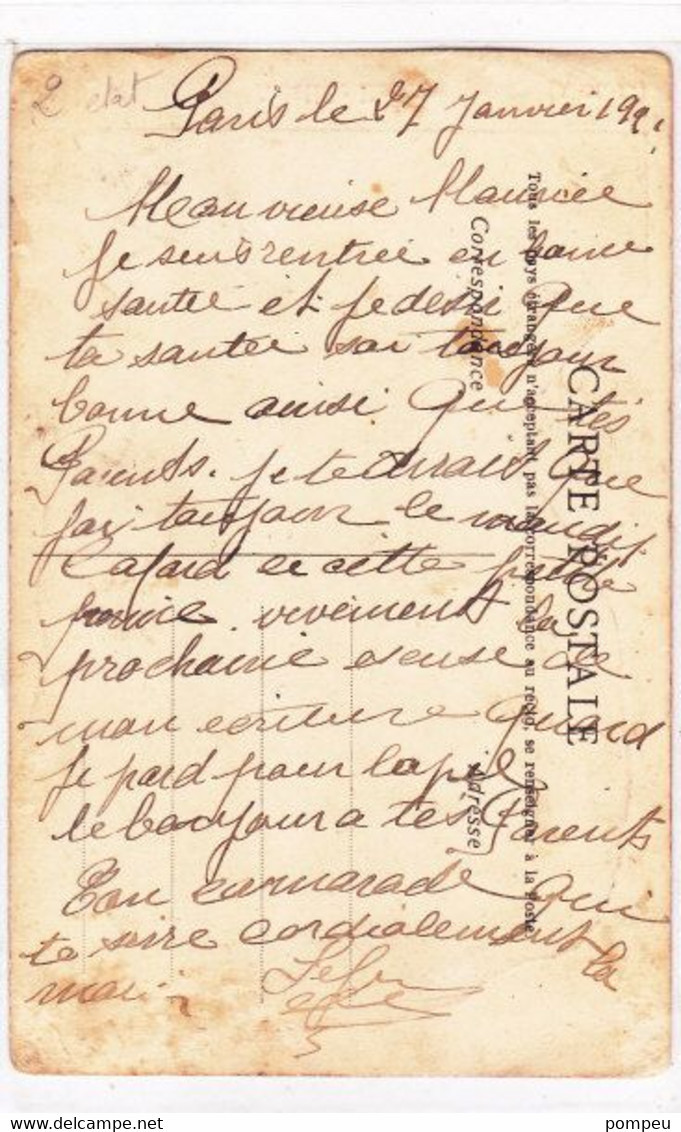 2 etat
Paris le 27 Janvier 192
Mon vieuse Maurice
Je suis rentrée en bonne
santée et je desir que
ta santée soi toujour
bonne ainsi que tes
Parents. je te dirais que
jai toujour le maudit
Cafard de cette
vivement la
prochaine escuse de
mon ecriture quand
je pard pour lapel
le bonjour a tes Parents
Ton camarade qui
te serre cordialement la
mai
CARTE POSTALE
Tous les pays étrangers n'acceptant pas la correspondance au recto, se renseigner à la Poste
Correspondance
Adresse
pompeu